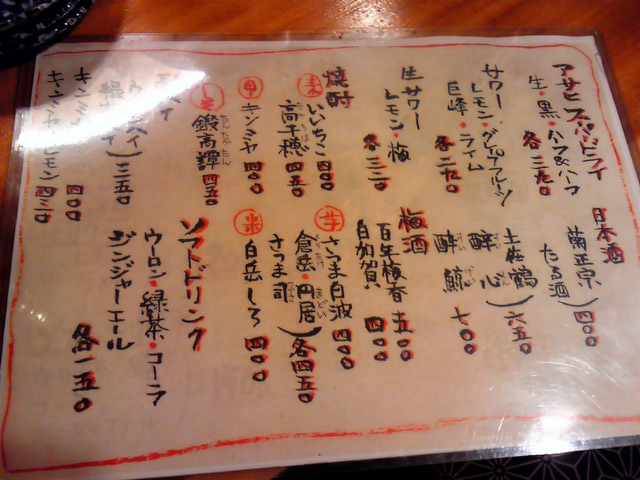 アサヒスーパードライ
生・黒・ハーフ&ハーフ
各三九〇
サワー
レモン・グレープフルーツ
巨峰・ライム
各二九〇
生サワー
レモン・梅
各三二〇
焼酎
麦 いいちこ 四〇〇
高千穂 四五〇
甲 キンミヤ 四〇〇
しそ 鍛高譚 四五〇
三五〇
四〇〇
キンミヤ・レモン 四三〇
日本酒
菊正宗
たる酒 四〇〇
土佐鶴
酔心 六五〇
酔鯨 七〇〇
梅酒
百年梅香 五〇〇
白加賀 四〇〇
芋 さつま白波 四〇〇
倉岳・円居
さつま司 各四五〇
米 白岳しろ 四〇〇
ソフトドリンク
ウーロン・緑茶・コーラ
ジンジャーエール
各一五〇